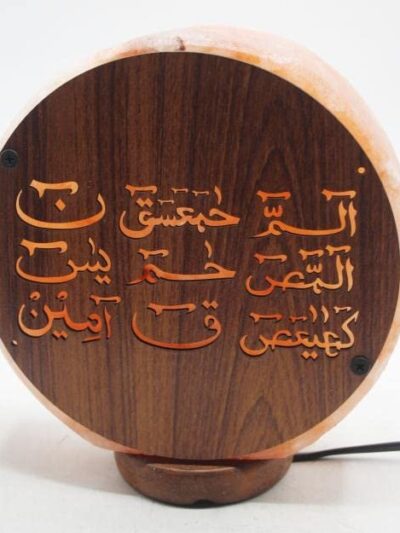 الٓمّٓ حٰمٓعٓسٓقٓ نٓ
الٓمّٓصٓ حٰمٓ يٰسٓ
كٓهٰيٰعٓصٓ قٓ اٰمِيْنْ